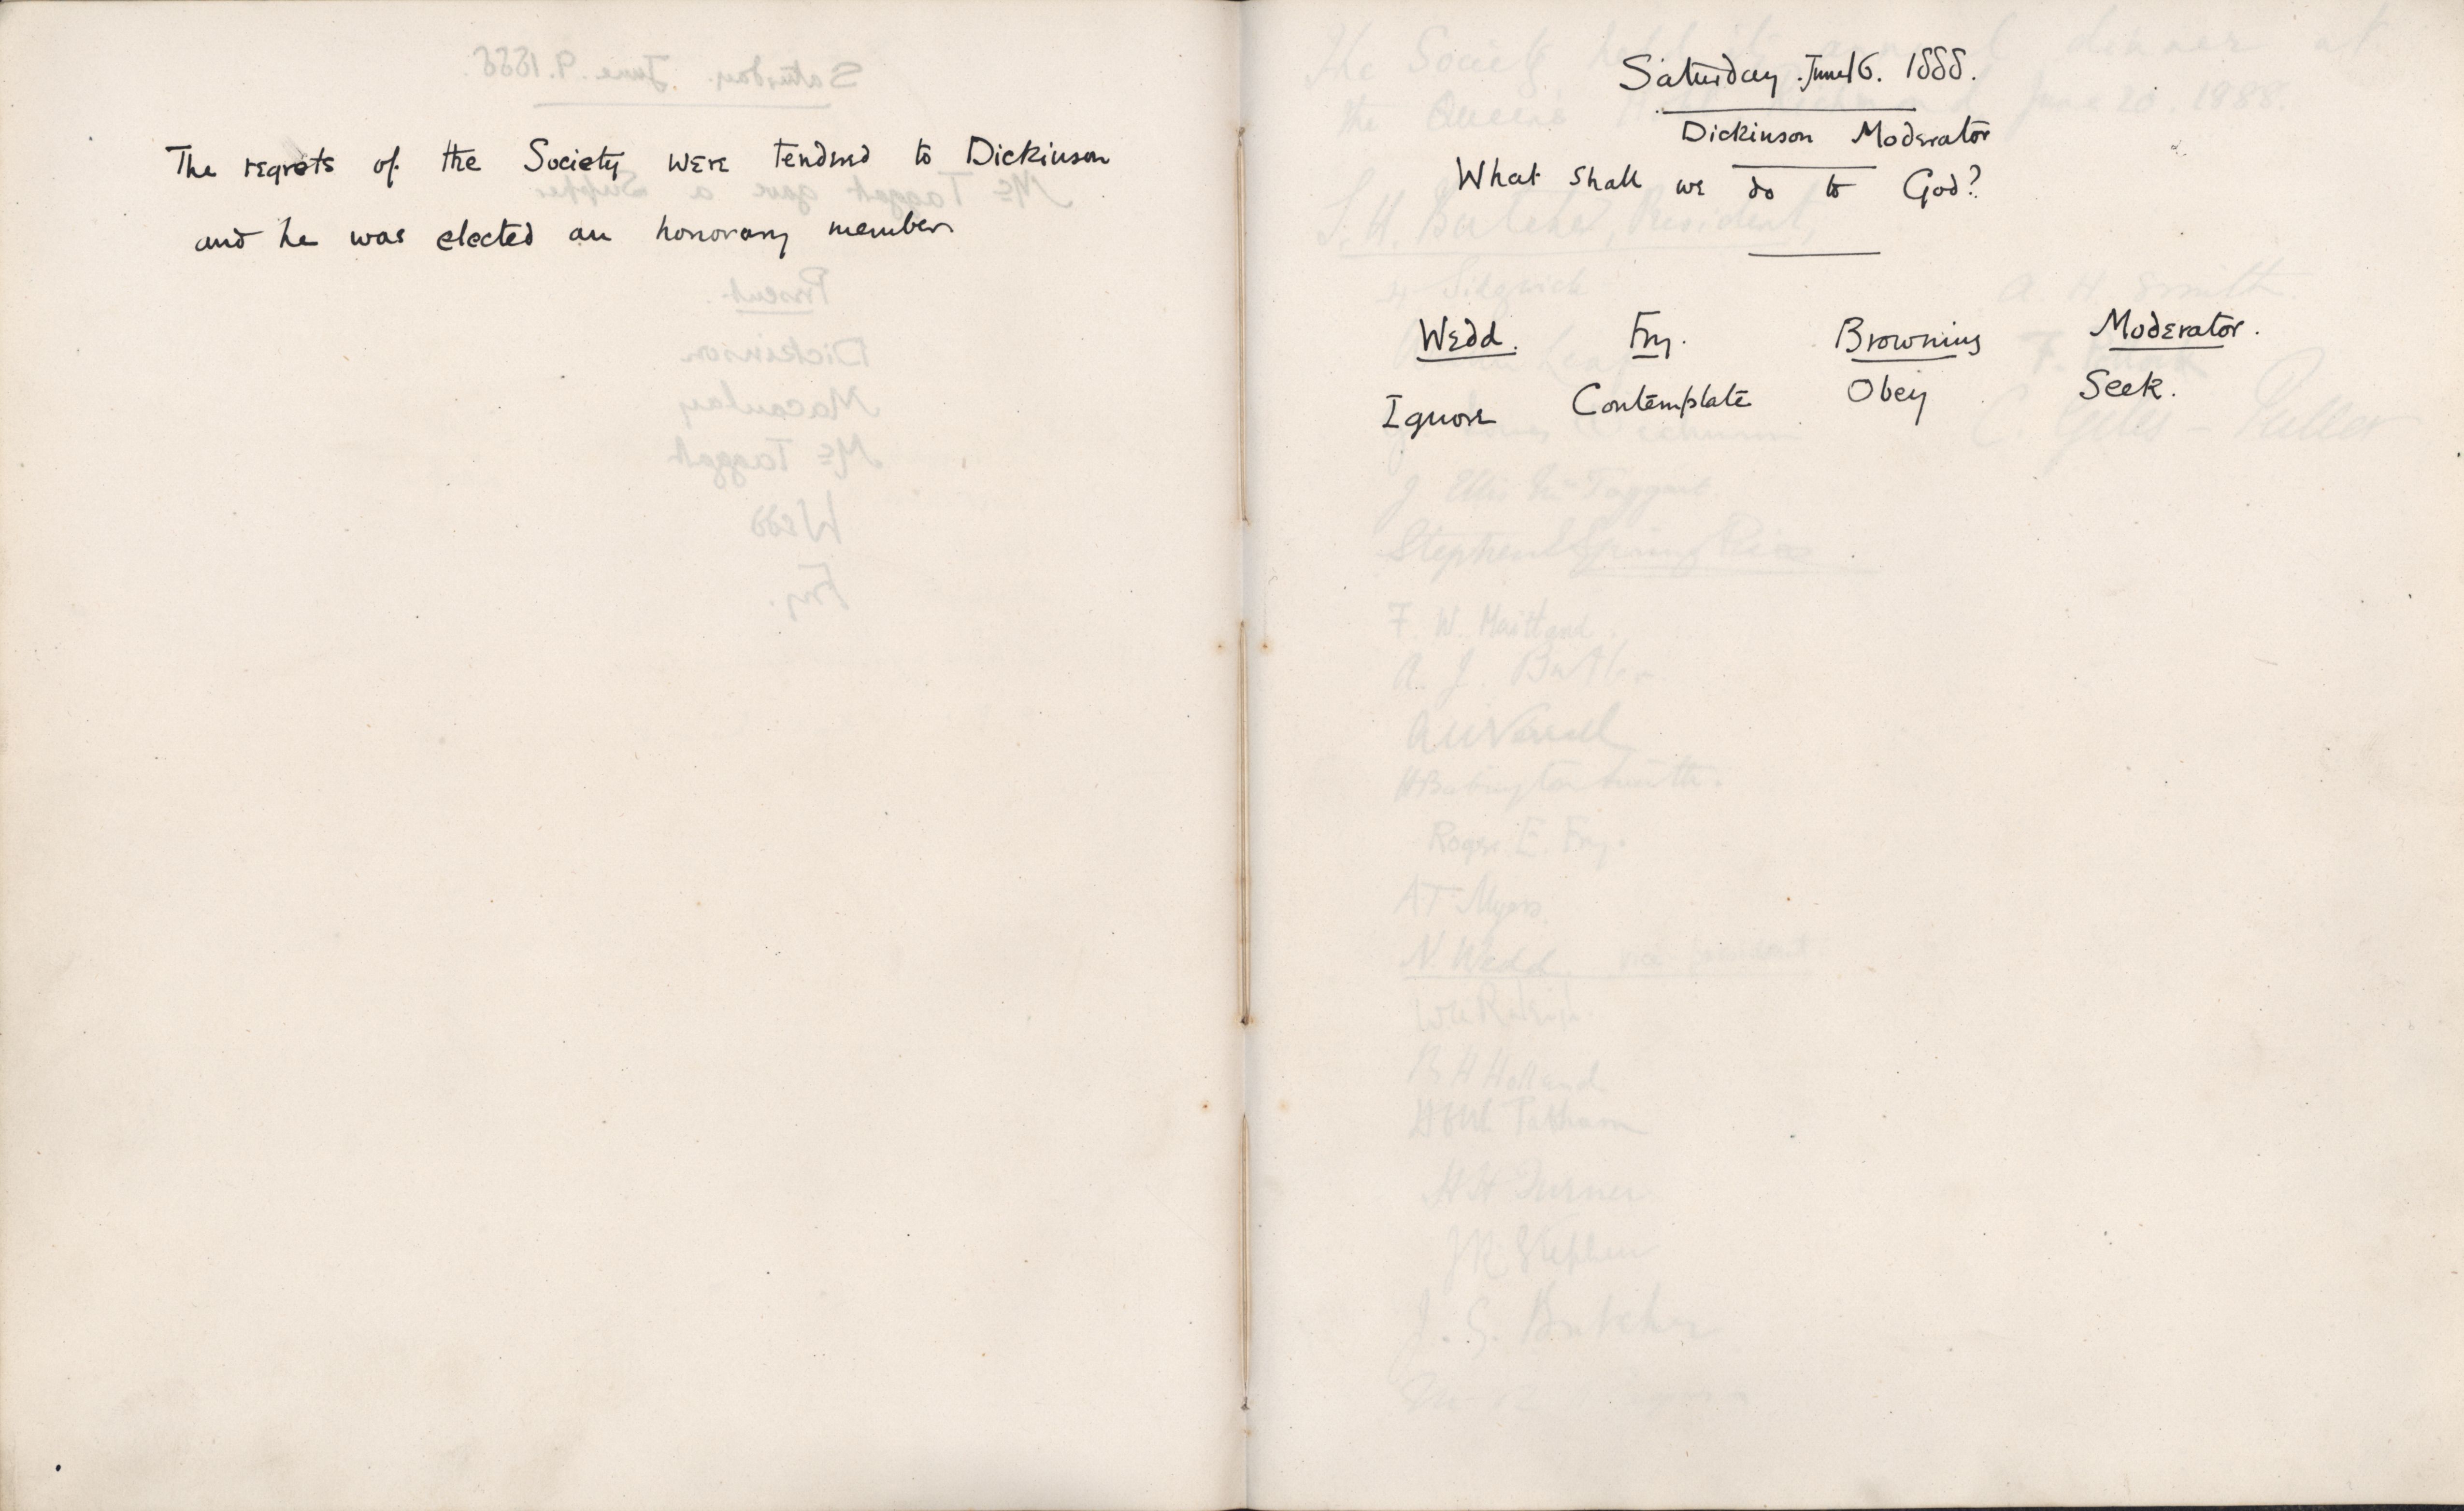 The regrets of the Society were tendered to Dickinson
and he was elected an honorary member
Saturday. June 16. 1888.
Dickinson Moderator
What shall we do to God?
Wedd. Fry. Browning Moderator.
Ignore Contemplate Obey Seek.